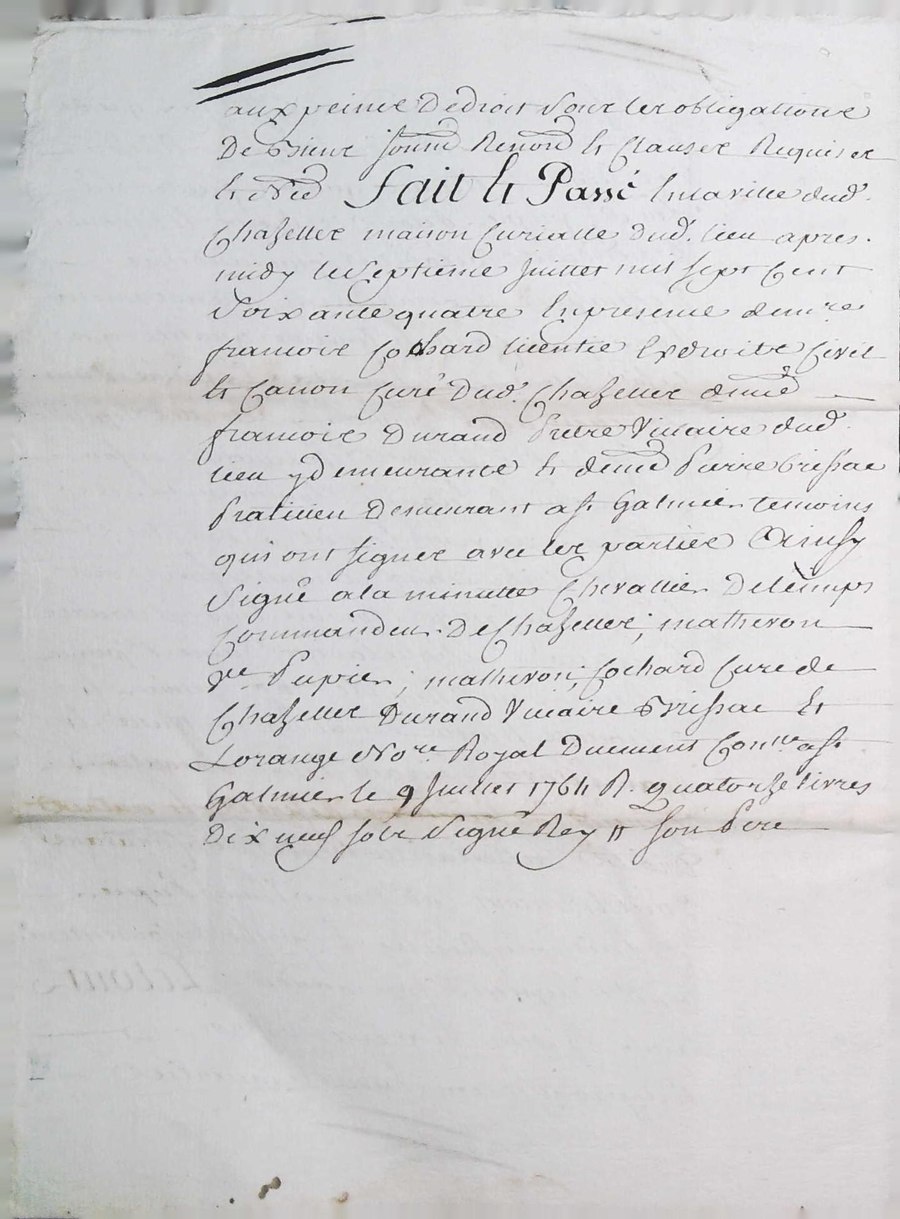 aux peines de droit sous les obligations
De Biens soums Renons et Clauses Requises
et Nec Fait et Passé en la ville dud.
Chazelles maison Curialle dud. lieu apres
midy le septieme Juillet mil sept cent
soixante quatre En presence de mre
francois Cochard licentié Es droits Civil
et Canon Curé Dud. Chazelles de me
francois Durand Pretre Vicaire dud.
lieu y demeurants et de me Pierre brissac
Praticien Demeurant a St Galmier temoins
qui ont signes avec les parties Ainsy
signé a la minutte Chevallier Delemps
Commandeur De Chazelles; matheron
ve Pupier; matheron; Cochard Curé de
Chazelles Durand Vicaire Brissac Et
Lorange Nore Royal Duement Conlle a St
Galmier le 9 Juillet 1764 R. quatorze livres
Dix neuf sols Signé Rey